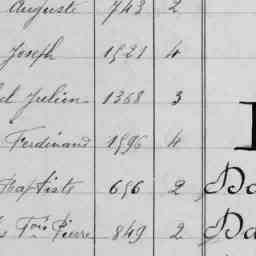 Auguste 743 2
Joseph 1521 4
Julien 1368 3
Ferdinand 1596 4
Baptiste 656 2 Da
Fois Pierre 849 2 Da